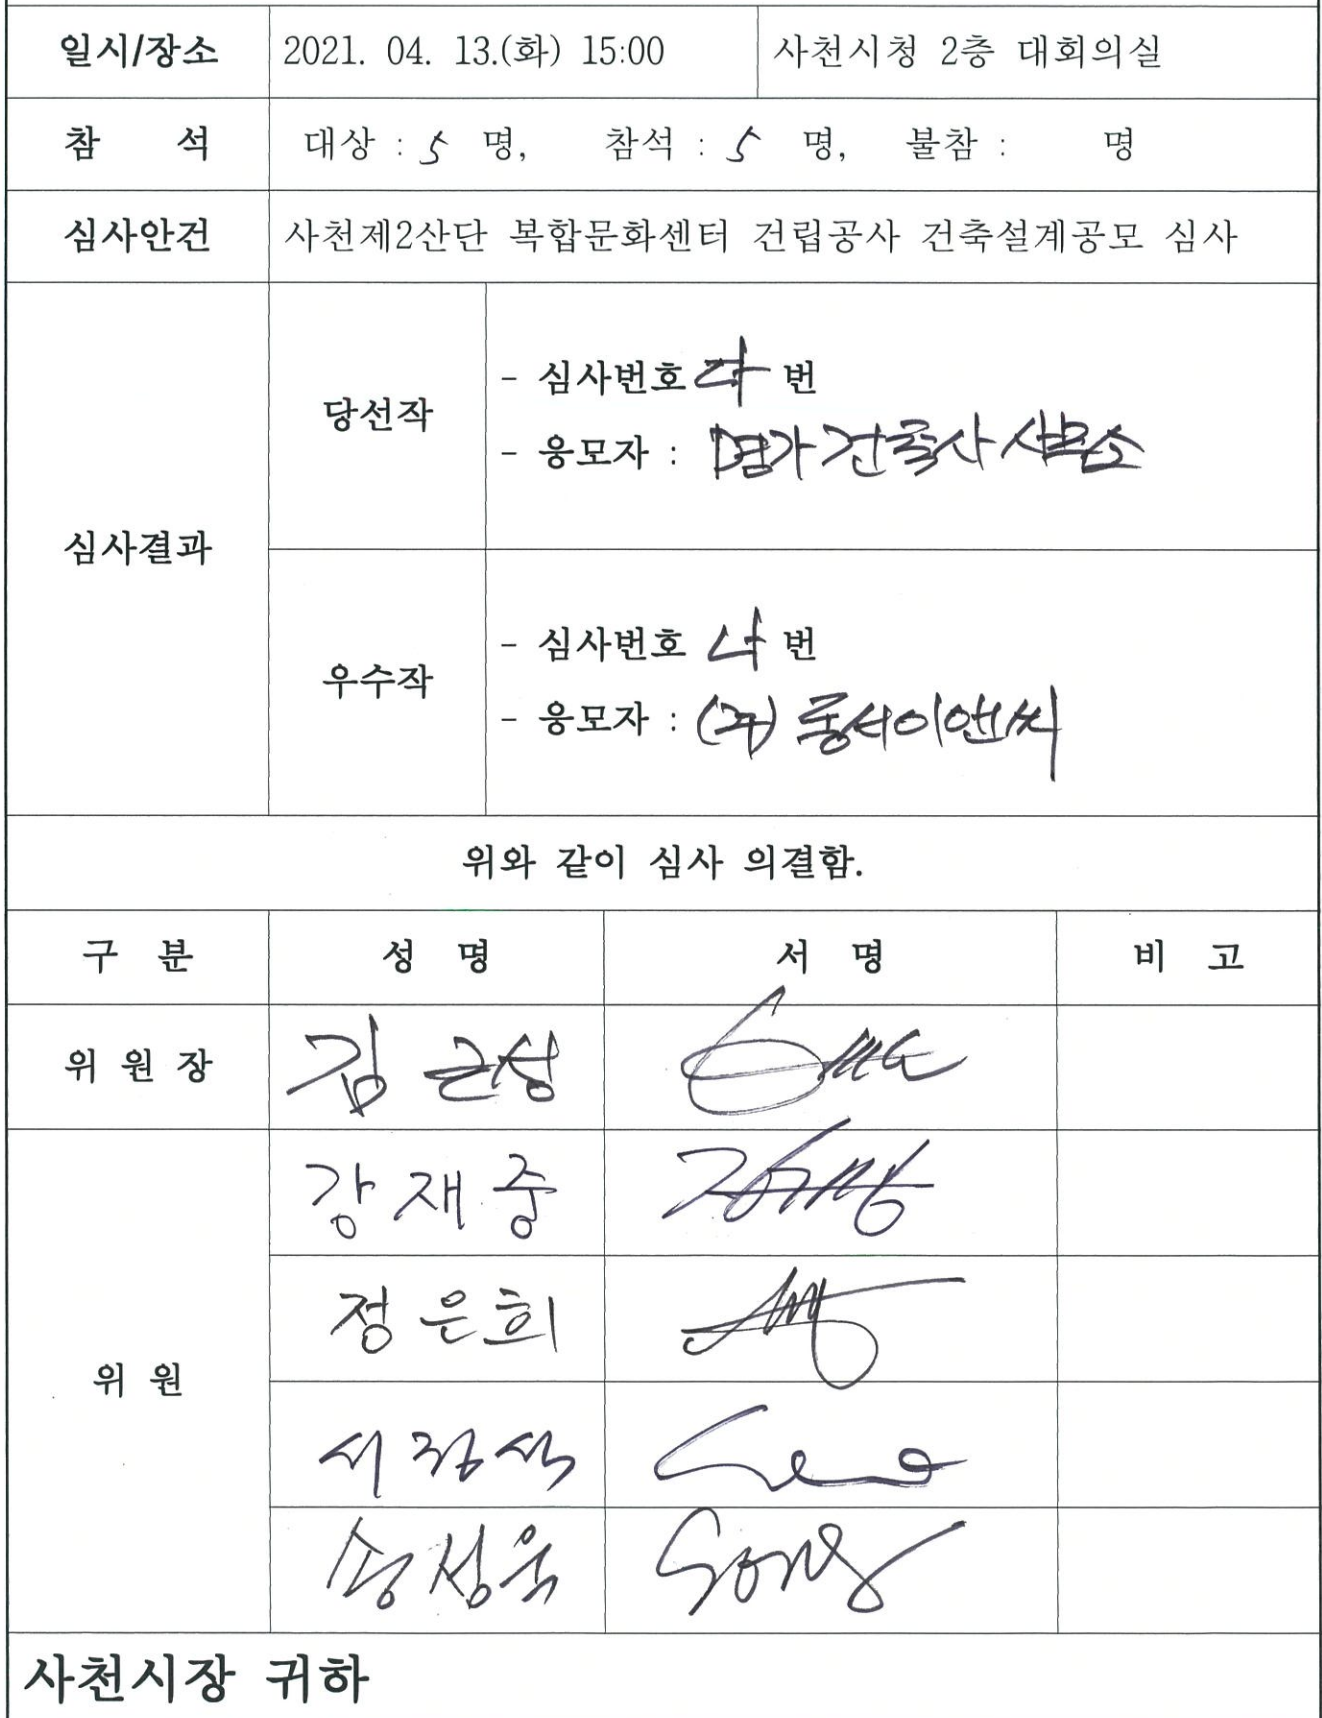 일시/장소 2021. 04. 13.(화) 15:00 사천시청 2층 대회의실
참 석 대상 : 5 명, 참석 : 5 명, 불참 : 명
심사안건 사천제2산단 복합문화센터 건립공사 건축설계공모 심사
심사결과
당선작
- 심사번호 다 번
- 응모자 : 명가건축사사무소
우수작
- 심사번호 나 번
- 응모자 : (주)동서이앤씨
위와 같이 심사 의결함.
구 분 성 명 서 명 비 고
위 원 장 김근성
위 원
강재중
정은희
서정석
송성욱 Song
사천시장 귀하